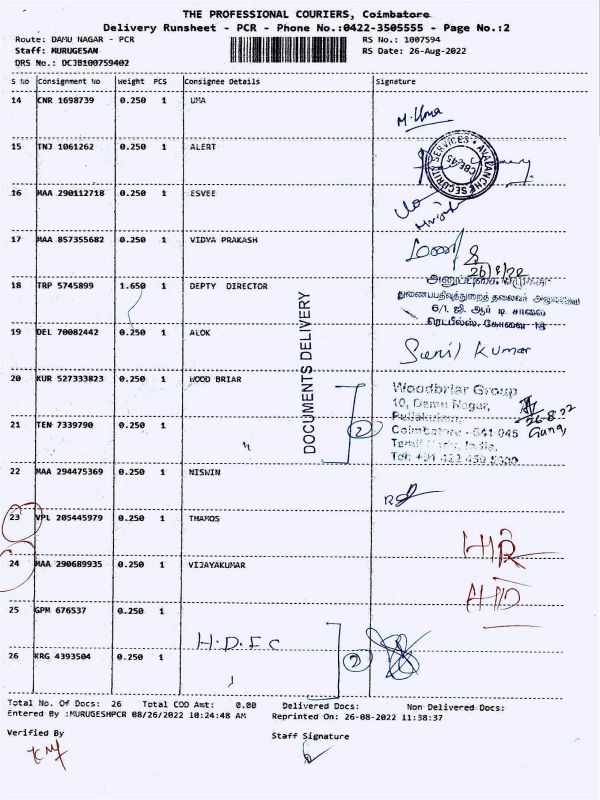 THE PROFESSIONAL COURIERS, Coimbatore
Delivery Runsheet - PCR - Phone No.:0422-3505555 - Page No.:2
Route: DAMU NAGAR - PCR
RS No.: 1007594
Staff: MURUGESAN
RS Date: 26-Aug-2022
DRS No.: DCJB100759402
S No Consignment No Weight PCS Consignee Details Signature
14 CNR 1698739 0.250 1 UMA
M. Uma
15 TNJ 1061262 0.250 1 ALERT
AVALANCHE SECURITY SERVICES
CBE45
16 MAA 290112718 0.250 1 ESVEE
17 MAA 857355682 0.250 1 VIDYA PRAKASH
26/8/22
18 TRP 5745899 1.650 1 DEPTY DIRECTOR
துணைப்பதிவுத்துறைத் தலைவர்
6/1, ஜி. ஆர் டி. சாலை
ரெட்பீல்ஸ், கோவை-18
19 DEL 70082442 0.250 1 ALOK
Sunil Kumar
DOCUMENTS DELIVERY
20 KUR 527333823 0.250 1 WOOD BRIAR
Woodbriar Group
10, Damu Nagar,
26-8-22
21 TEN 7339790 0.250 1
2
Coimbatore - 641 045
Tel: +91 422 450 5300
22 MAA 294475369 0.250 1 NISWIN
23 VPL 205445979 0.250 1 THAMOS
24 MAA 290689935 0.250 1 VIJAYAKUMAR
25 GPM 676537 0.250 1
H.D.F.C
2
26 KRG 4393504 0.250 1
Total No. Of Docs: 26 Total COD Amt: 0.00 Delivered Docs: Non Delivered Docs:
Entered By :MURUGESHPCR 08/26/2022 10:24:48 AM Reprinted On: 26-08-2022 11:38:37
Verified By
Staff Signature